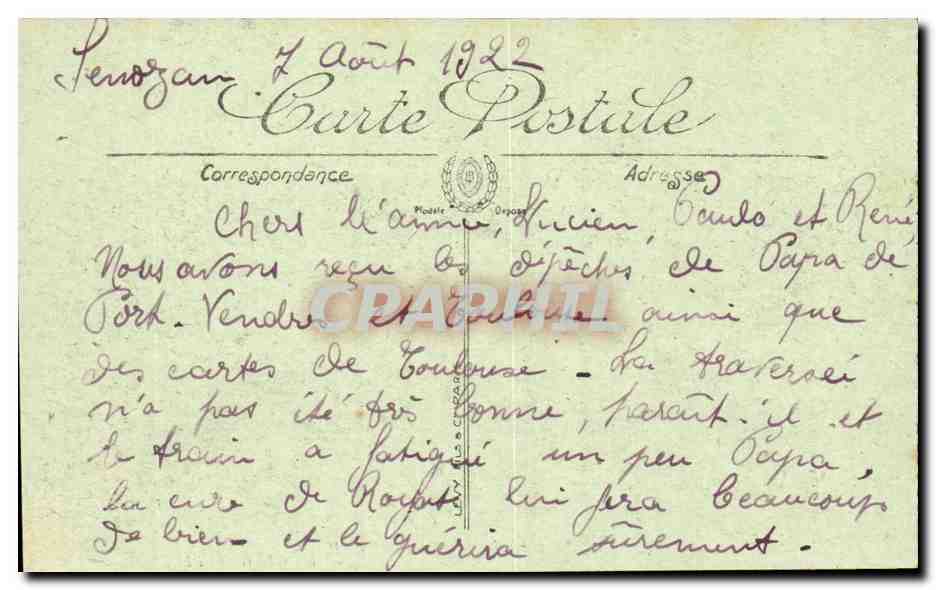 Senozan 7 Août 1922
Carte Postale
Correspondance Adresse
Modèle Déposé
Chers Lucien, Paulo et René,
Nous avons reçu les dépêches de Papa de
Port-Vendres et Toulouse ainsi que
des cartes de Toulouse - La traversée
n'a pas été très bonne, paraît-il et
le train a fatigué un peu Papa,
la cure de Royat lui fera beaucoup
de bien et le guérira sûrement.
CPARPHIL
LEVY FILS & Cie PARIS